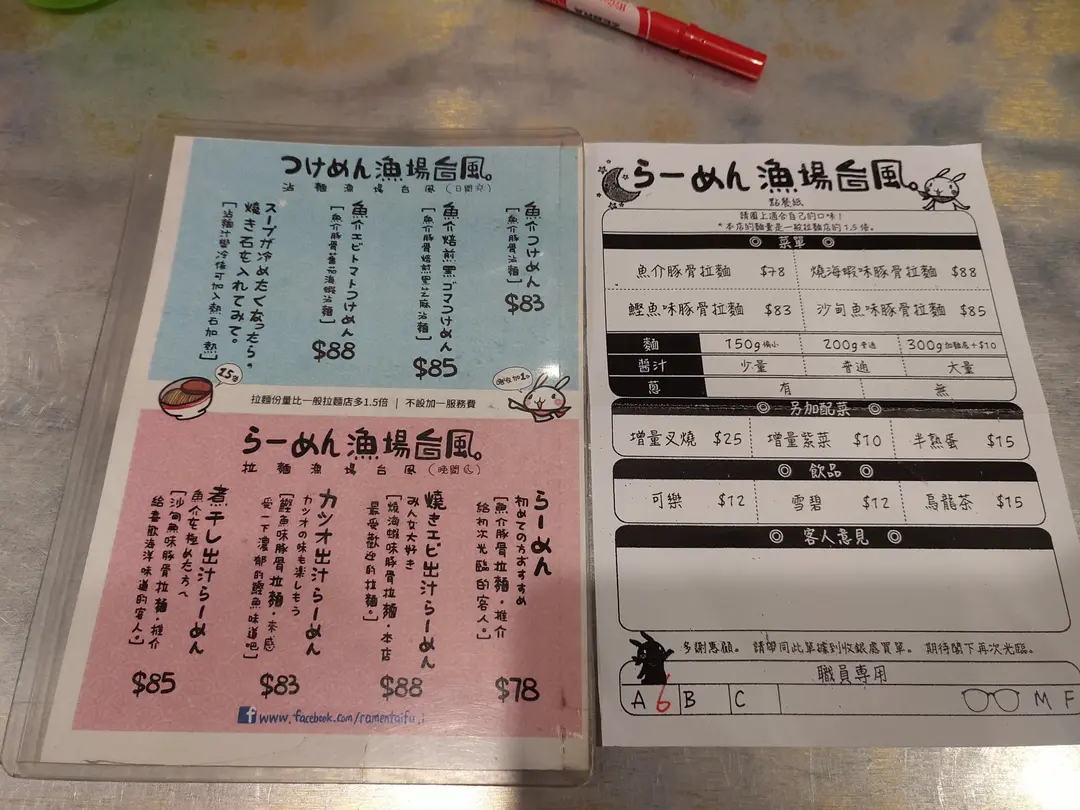 つけめん漁場台風。
沾麵漁場台風(日間☼)
魚介つけめん
[魚介豚骨沾麵]
$83
魚介焙煎黒ゴマつけめん
[魚介豚骨焙煎黑芝麻沾麵]
$85
魚介エビトマトつけめん
[魚介豚骨蕃茄海蝦沾麵]
$88
スープが冷めたくなったら。
焼き石を入れてみて。
[沾麵汁變冷後可加入熱石加熱]
1.5倍
拉麵份量比一般拉麵店多1.5倍 | 不設加一服務費
らーめん漁場台風。
拉麵漁場台風(晚間☾)
らーめん
初めての方おすすめ
[魚介豚骨拉麵・推介
給初次光臨的客人。]
$78
焼きエビ出汁らーめん
みんな大好き
[燒海蝦味豚骨拉麵・本店
最受歡迎的拉麵。]
$88
カツオ出汁らーめん
カツオの味も楽しもう
[鰹魚味豚骨拉麵・來感
受一下濃郁的鰹魚味道吧]
$83
煮干し出汁らーめん
魚介を極めた方へ
[沙甸魚味豚骨拉麵・推介
給喜歡海洋味道的客人。]
$85
f www.facebook.com/ramentaifu
らーめん漁場台風。
點餐紙
請圈上適合自己的口味!
*本店的麵量是一般拉麵店的1.5倍。
◎ 菜單 ◎
魚介豚骨拉麵 $78 燒海蝦味豚骨拉麵 $88
鰹魚味豚骨拉麵 $83 沙甸魚味豚骨拉麵 $85
麵 150g偏小 200g普通 300g加麵底+$10
醬汁 少量 普通 大量
蔥 有 無
◎ 另加配菜 ◎
增量叉燒 $25 增量紫菜 $10 半熟蛋 $15
◎ 飲品 ◎
可樂 $12 雪碧 $12 烏龍茶 $15
◎ 客人意見 ◎
多謝惠顧。 請帶同此單據到收銀處買單。 期待閣下再次光臨。
職員専用
A 6 B C M F